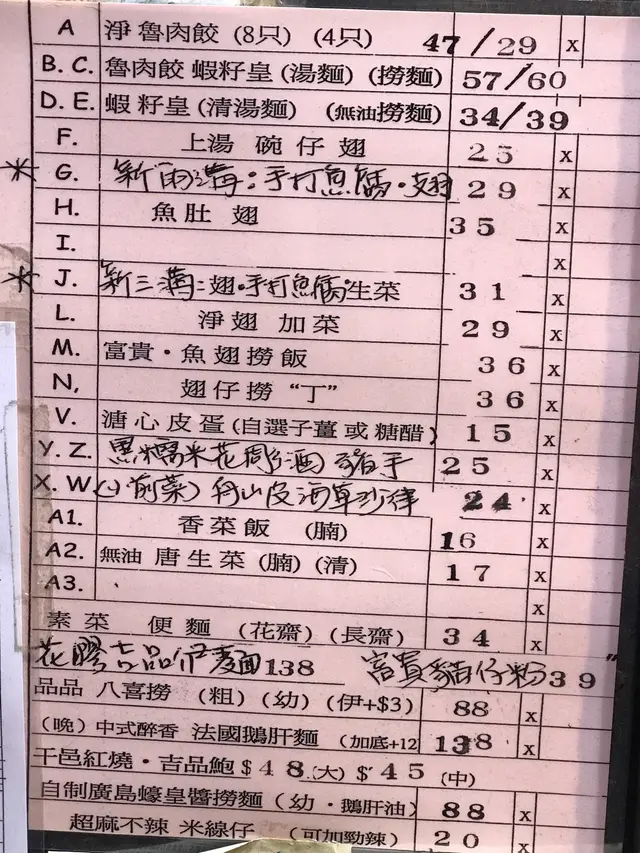 A 淨 魯肉餃 (8只) (4只) 47/29 x
B. C. 魯肉餃 蝦籽皇 (湯麵) (撈麵) 57/60
D. E. 蝦籽皇 (清湯麵) (無油撈麵) 34/39
F. 上湯 碗仔翅 25 x
* G. 新雨溝:手打魚腐·翅 29 x
H. 魚肚 翅 35 x
I. x
* J. 新三溝:翅·手打魚腐·生菜 31 x
L. 淨翅 加菜 29 x
M. 富貴·魚翅撈飯 36 x
N, 翅仔撈 “丁” 36 x
V. 溏心皮蛋 (自選子薑或糖醋) 15 x
Y. Z. 黑糯米花周(酒) 豬手 25 x
X. W (小前菜) 皮 24 x
A1. 香菜飯 (腩) 16 x
A2. 無油 唐生菜 (腩) (清) 17 x
A3. x
素菜 便麵 (花齋) (長齋) 34 x
花膠吉品伊麵138 富貴豬仔粉39
品品 八喜撈 (粗) (幼) (伊+$3) 88 x
(晚) 中式醉香 法國鵝肝麵 (加底+12) 138 x
干邑紅燒·吉品鮑 $48(大) $45 (中)
自制廣島蠔皇醬撈麵 (幼·鵝肝油) 88 x
超麻不辣 米線仔 (可加勁辣) 20 x